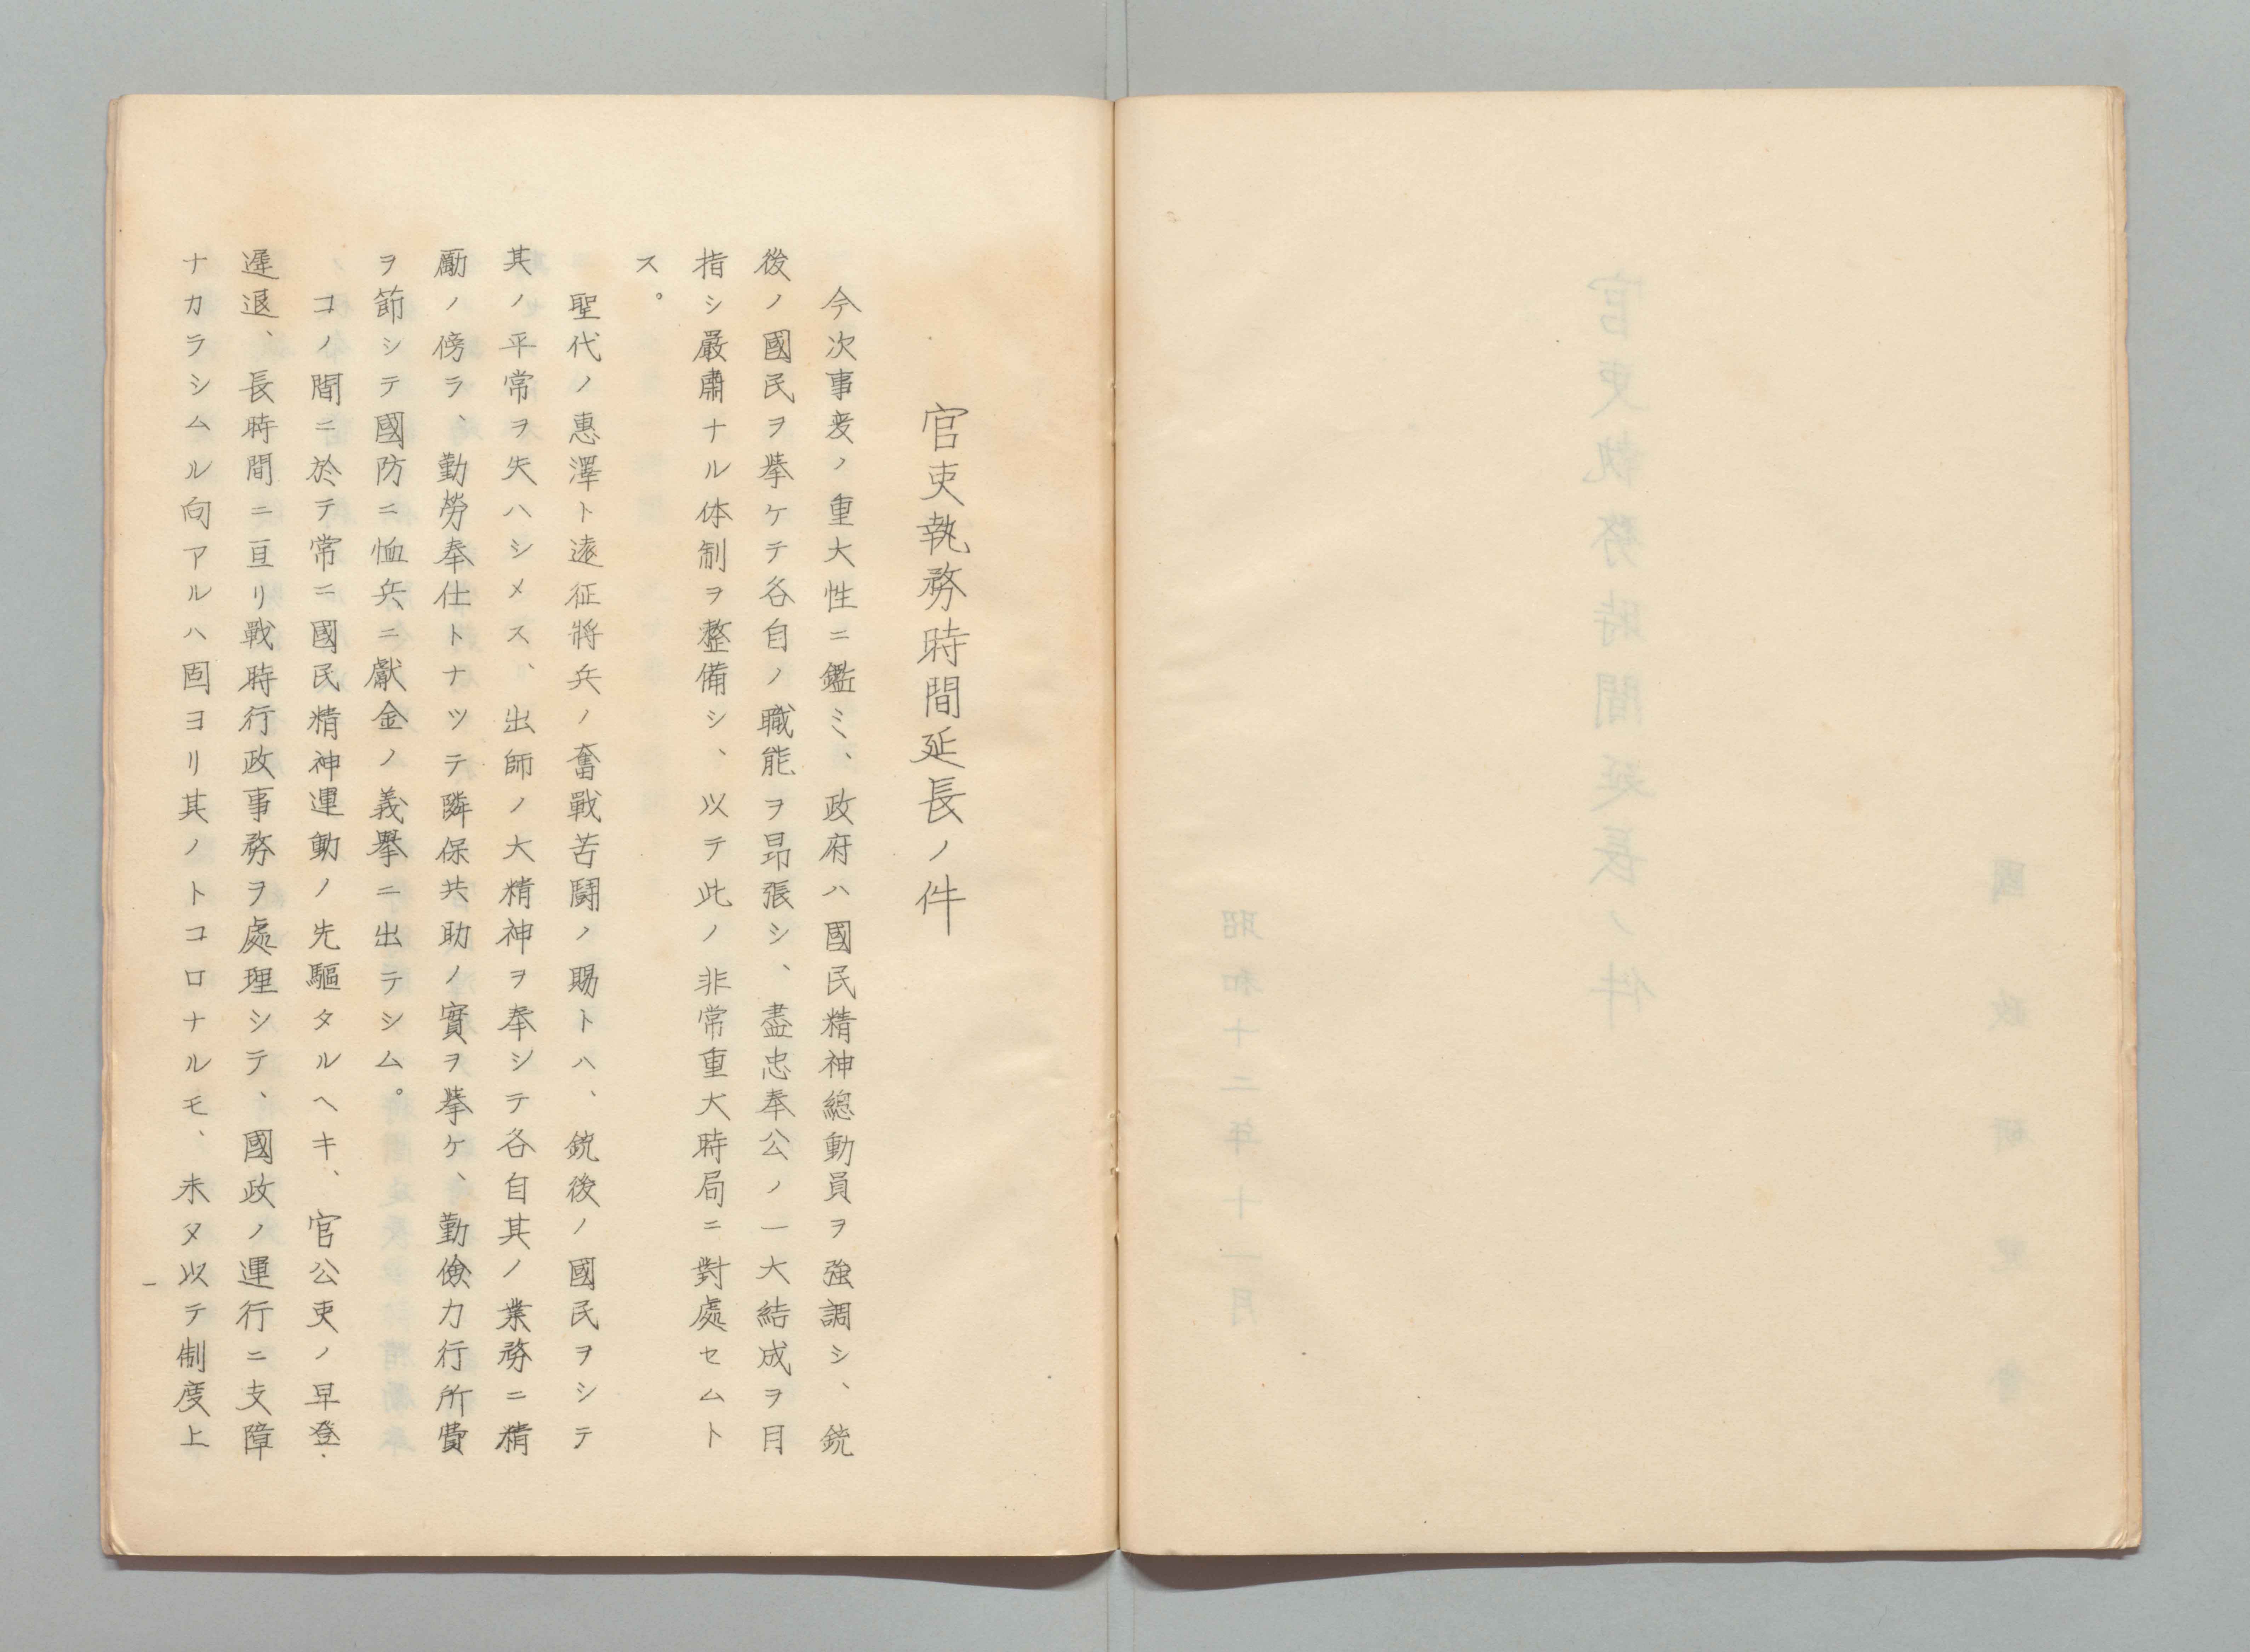 官吏執務時間延長ノ件
今次事変ノ重大性ニ鑑ミ、政府ハ國民精神總動員ヲ強調シ、銃
後ノ國民ヲ挙ケテ各自ノ職能ヲ昂張シ、盡忠奉公ノ一大結成ヲ目
指シ嚴肅ナル体制ヲ整備シ、以テ此ノ非常重大時局ニ對處セムト
ス。
聖代ノ惠澤ト遠征將兵ノ奮戰苦闘ノ賜トハ、銃後ノ國民ヲシテ
其ノ平常ヲ失ハシメス、出師ノ大精神ヲ奉シテ各自其ノ業務ニ精
勵ノ傍ラ、勤勞奉仕トナツテ隣保共助ノ實ヲ挙ケ、勤儉力行所費
ヲ節シテ國防ニ恤兵ニ獻金ノ義擧ニ出テシム。
コノ間ニ於テ常ニ國民精神運動ノ先驅タルヘキ、官公吏ノ早登、
遲退、長時間ニ亘リ戰時行政事務ヲ處理シテ、國政ノ運行ニ支障
ナカラシムル向アルハ固ヨリ其ノトコロナルモ、未タ以テ制度上
一
官吏執務時間延長ノ件
昭和十二年十一月